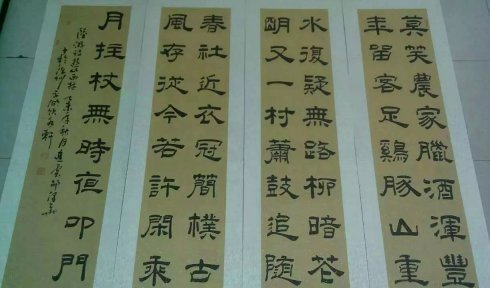 莫笑農家臘酒渾豐
年留客足鷄豚山重
水復疑無路柳暗花
明又一村簫鼓追隨
春社近衣冠簡樸古
風存從今若許閑乘
月拄杖無時夜叩門
陸游詩遊山西村